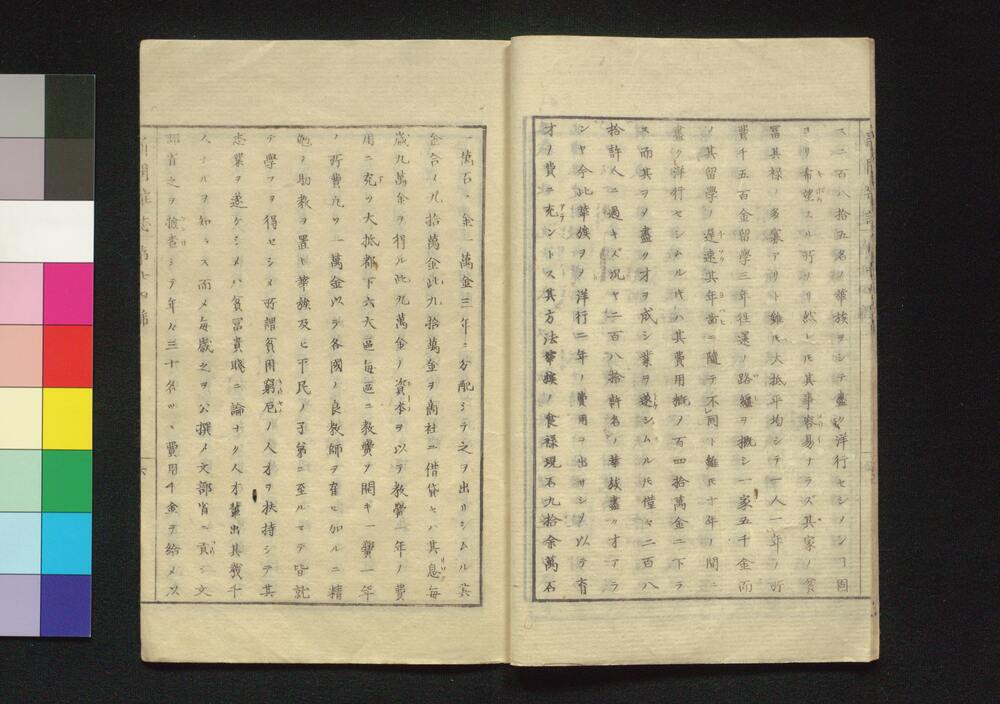 ス二百八拾五名ノ華族ヲシテ盡ク洋行セシメンヿ固
ヨリ希望スル所ナリ然レ𪜈其事容易ナラズ其家ノ貧
冨其禄ノ多寡アリト雖𪜈大抵平均シテ一人一年ノ所
費千五百金留學三年徃還ノ路纏ヲ概シ一家五千金而
ノ其留學ノ遅速其年歯ニ隨テ不同ト雖𪜈十年ノ間ニ
盡ク洋行セシムル時ハ其費用概ノ百四拾萬金ニ下ラ
ス而其ヲヲ盡ク才ヲ成シ業ヲ遂シムル𪜈僅ニ二百八
拾許人ニ過キズ况ヤ二百八拾許名ノ華族盡ク才アラ
ンヤ今此華族ヲノ洋行二年ノ費用ヲ出サシメ以テ育
才ノ費ニ充ントス其方法華族ノ食禄現石九拾余萬石
一萬石ニ金一萬金三年ニ分配シテ之ヲ出サシムル其
金合ノ九拾萬金此九拾萬金ヲ商社ニ借貸セハ其息毎
歳九萬金ヲ得ル此九萬金ノ資本ヲ以テ教黌一年ノ費
用ニ充ツ大抵都下六大區毎區ニ教黌ヲ開キ一黌一年
ノ所費九ソ一萬金以テ各國ノ良教師ヲ雇ヒ加ルニ精
勉ノ助教ヲ置ヒ華族及ヒ下民ノ子第ニ至ルマテ皆就
テ學フヲ得セシメ所謂貧困窮厄ノ人才ヲ扶持シテ其
志業ヲ遂ケシメハ貧冨貴賤ニ論ナク人才輩出其幾千
人ナルヲ知ラス而メ毎歳之ヲ公撰メ文部省ニ貢シ文
部省之ヲ檢査シテ年々三十名ツヽ費用千金ヲ給メ以